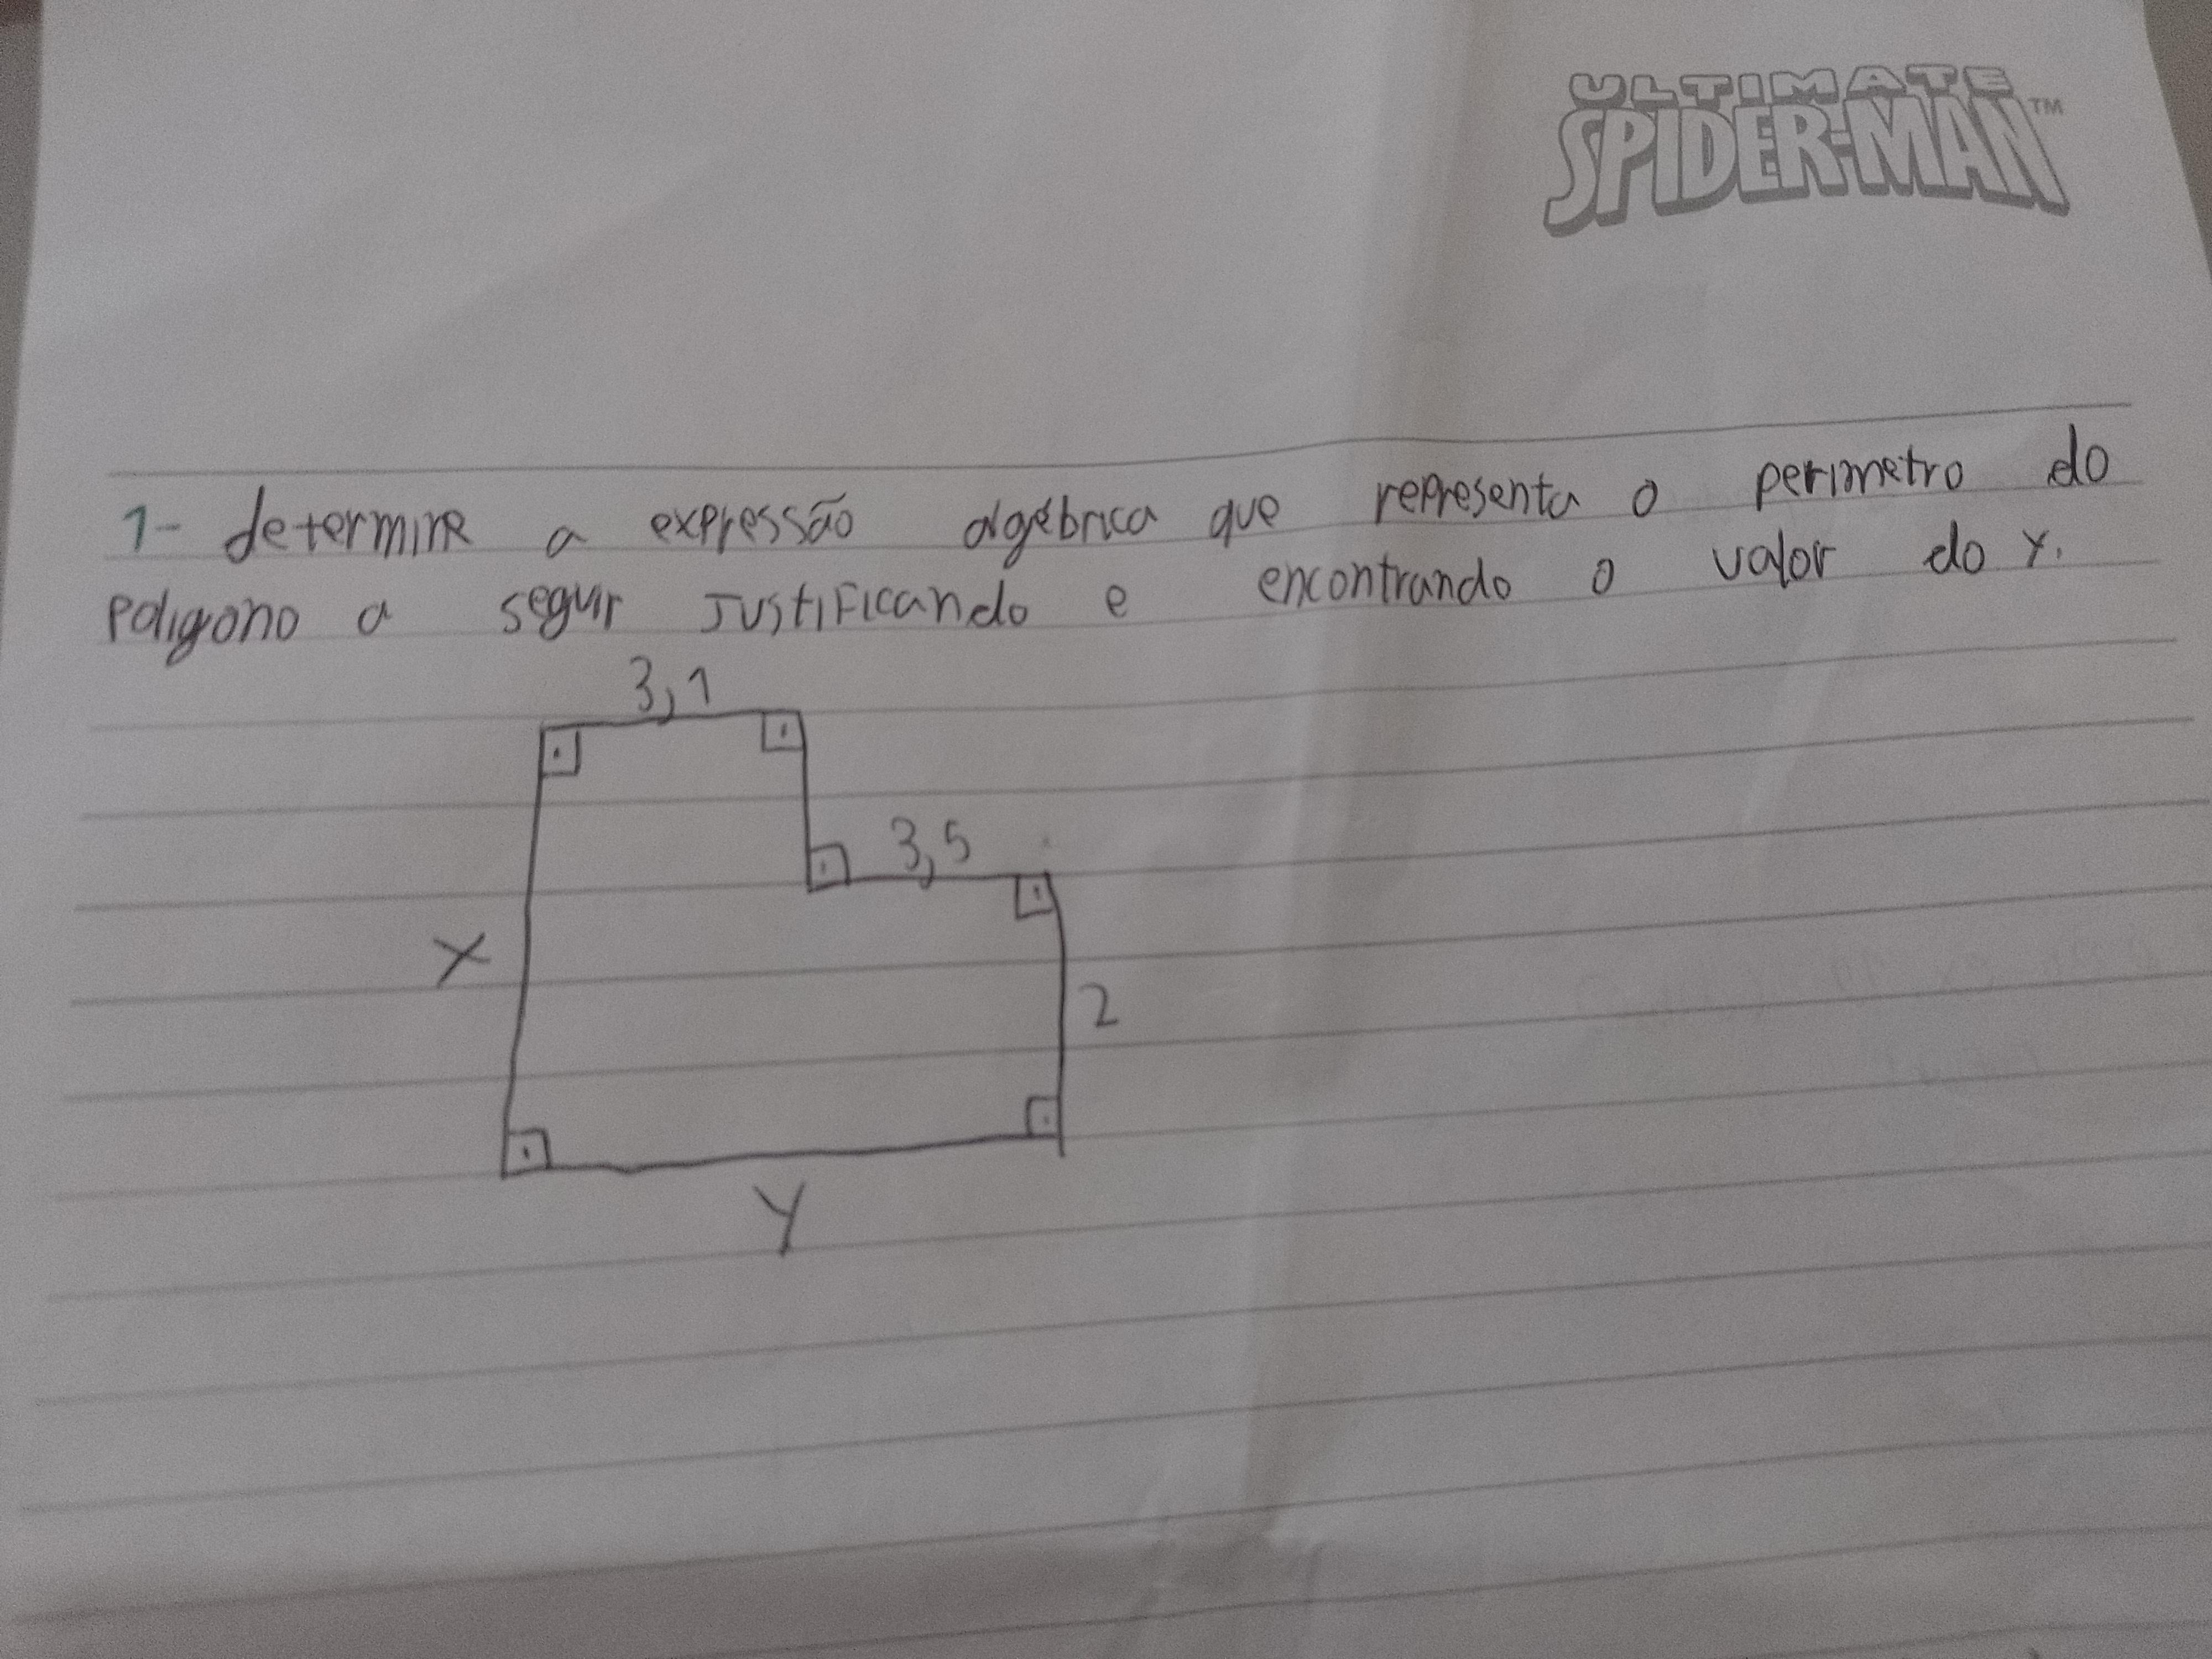 ULTIMATE
SPIDER-MAN™
1- determine a expressão algébrica que representa o perimetro do
poligono a seguir Justificando e encontrando o valor do Y.
3,1
3,5
X
2
Y